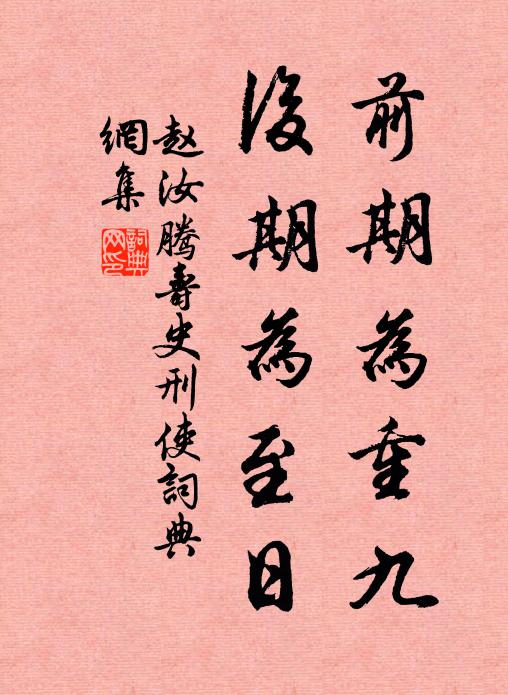 前期為重九
後期為至日
赵汝腾壽史刑使詞典
網集
詞典
网印